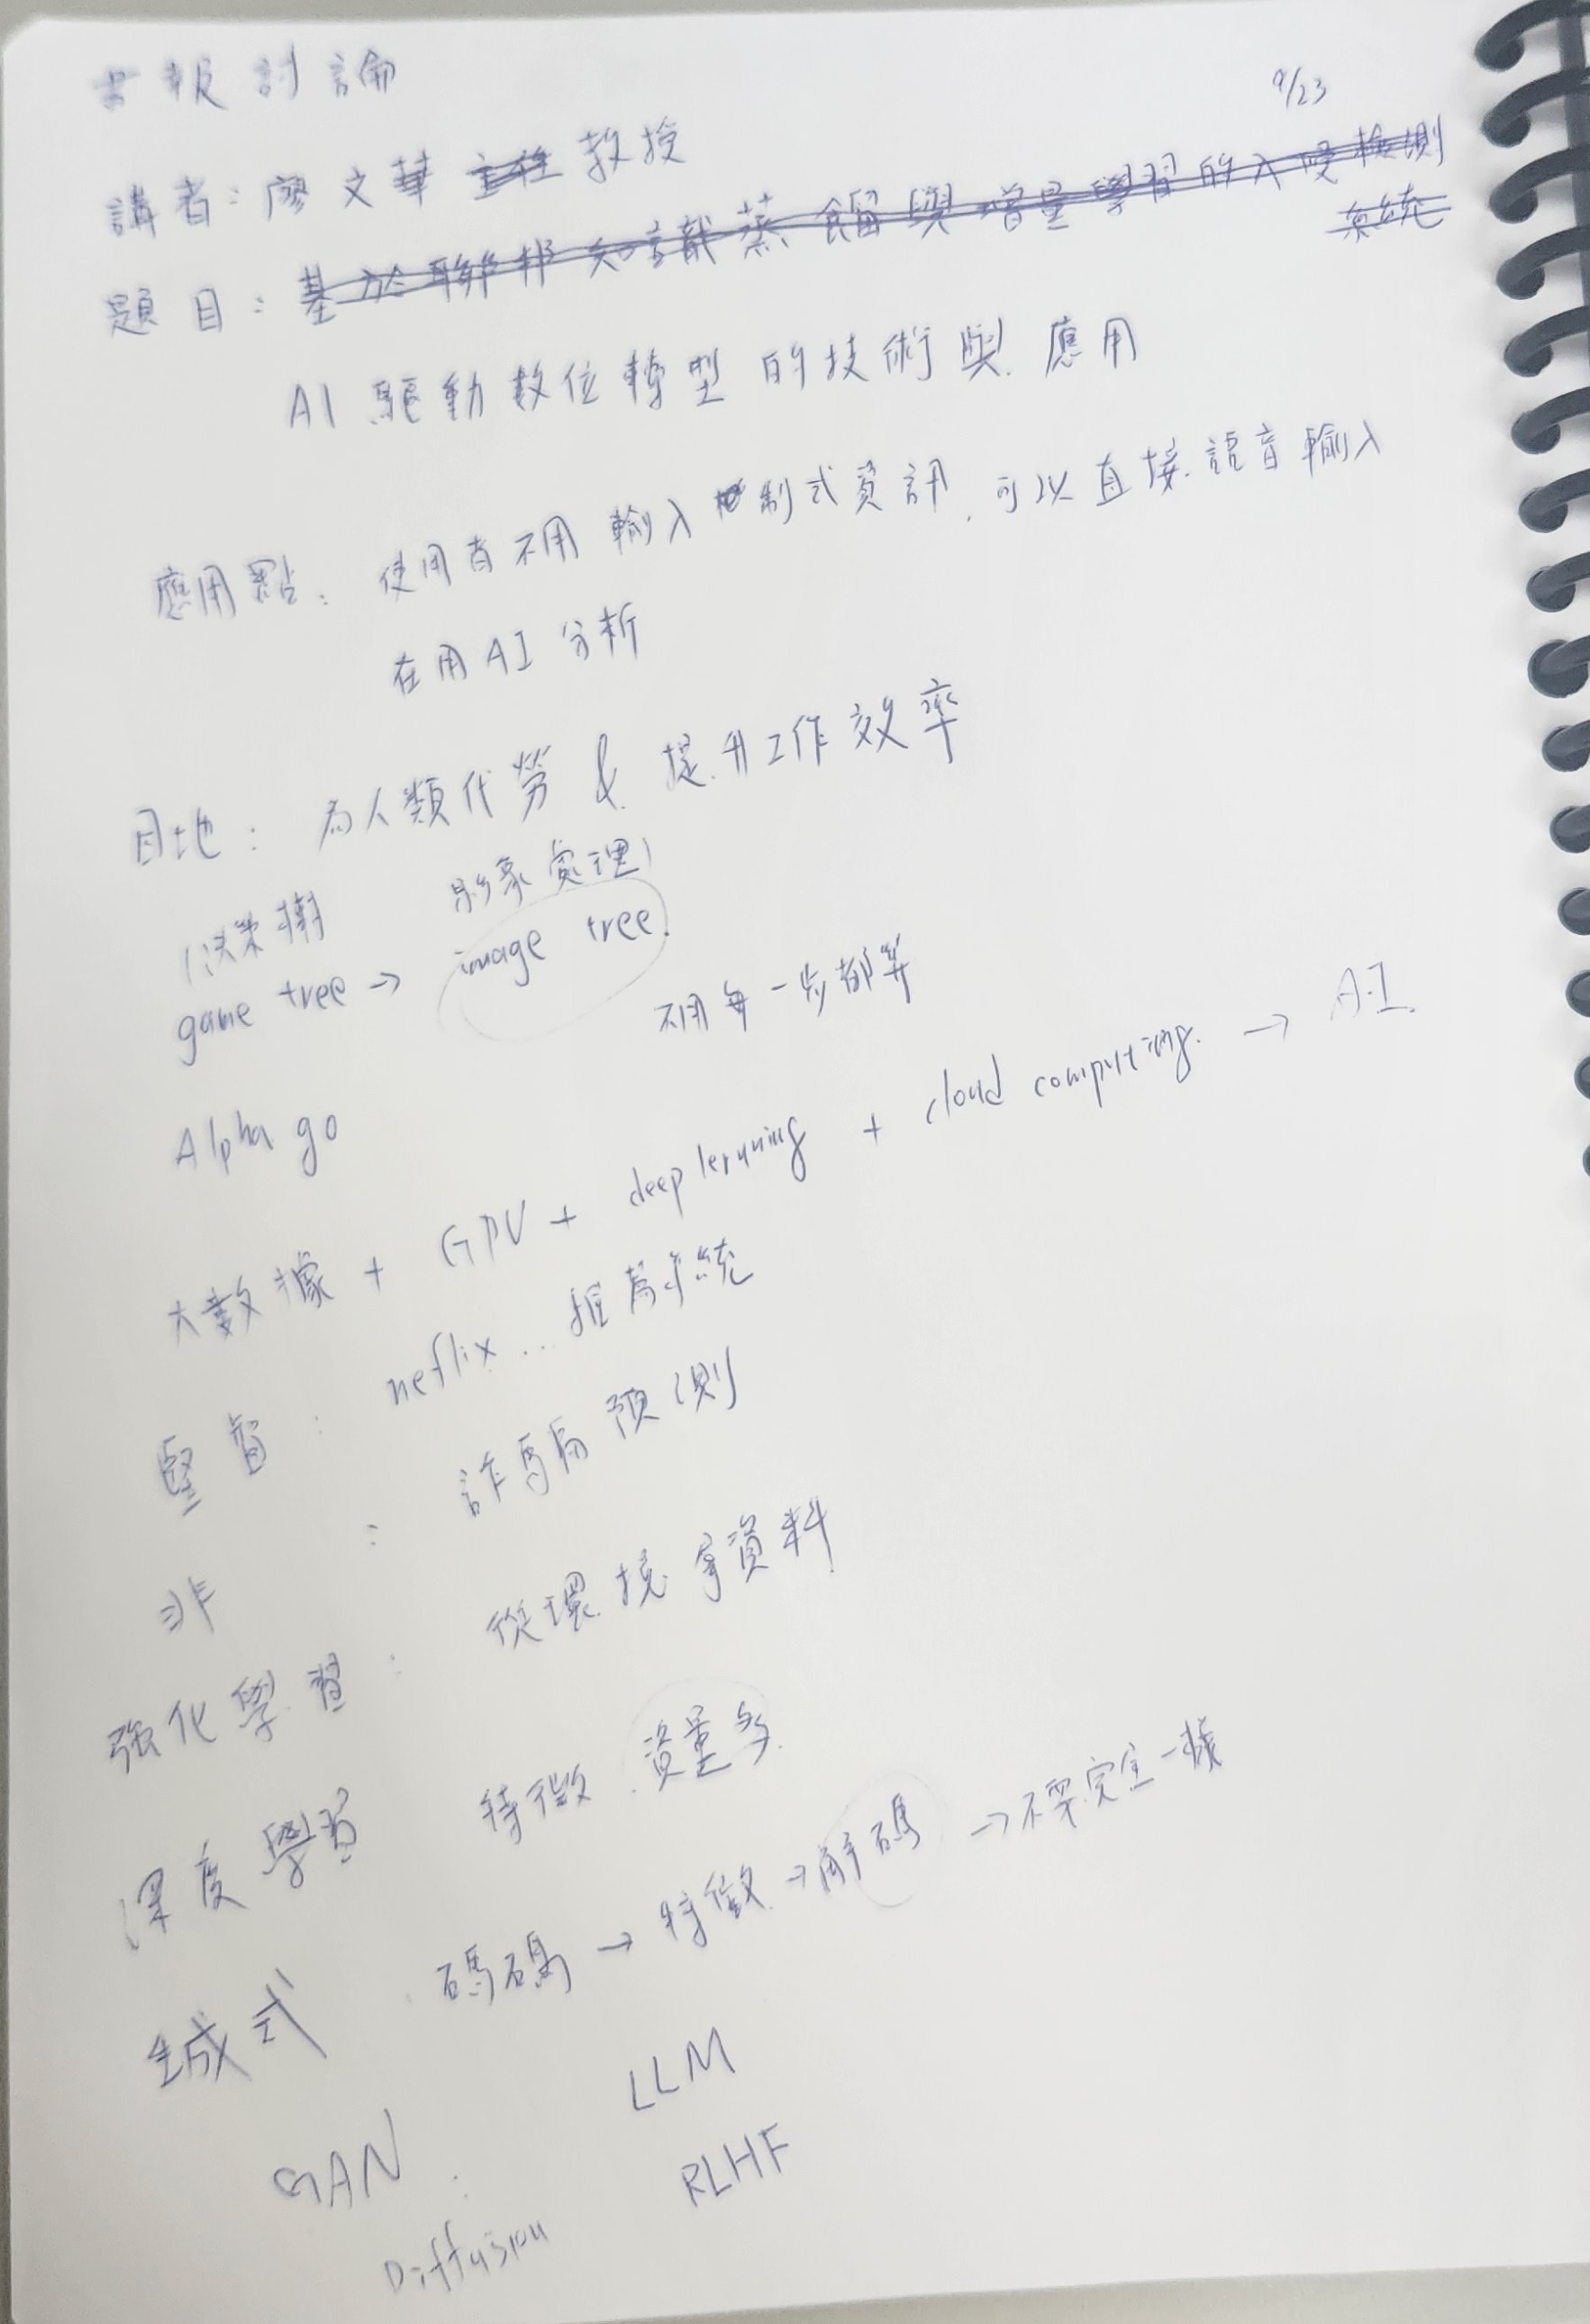 書報討論
9/23
講者：廖文華 主任 教授
題目：基於聯邦知識蒸餾與增量學習的入侵檢測
系統
AI 驅動數位轉型的技術與應用
應用點：使用者不用輸入制式資訊，可以直接語音輸入
在用AI分析
目地：為人類代勞 & 提升工作效率
決策樹 影象處理
game tree → image tree.
不用每一步都算
Alpha go
大數據 + GPU + deep lerning + cloud computing. → AI.
neflix... 推薦系統
監督：
非 ： 詐騙預測
強化學習： 從環境拿資料
深度學習 特徵 資量多
生成式 碼碼 → 特徵 → 解碼 → 不要完全一樣
GAN LLM
Diffusion RLHF